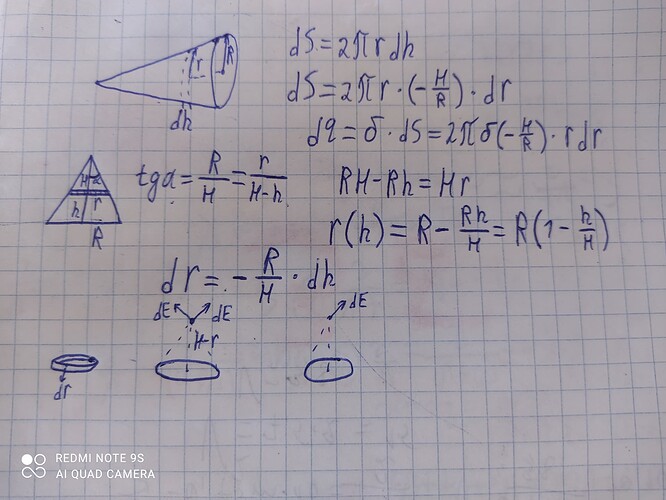 dS = 2πr dh
r R
dh
dS = 2πr · (-H/R) · dr
dq = б · dS = 2πб(-H/R) · r dr
H a
h r
R
tga = R/H = r/(H-h)
RH-Rh = Hr
r(h) = R - Rh/H = R(1 - h/H)
dr = - R/H · dh
dE dE
H-r
dE
dr
REDMI NOTE 9S
AI QUAD CAMERA